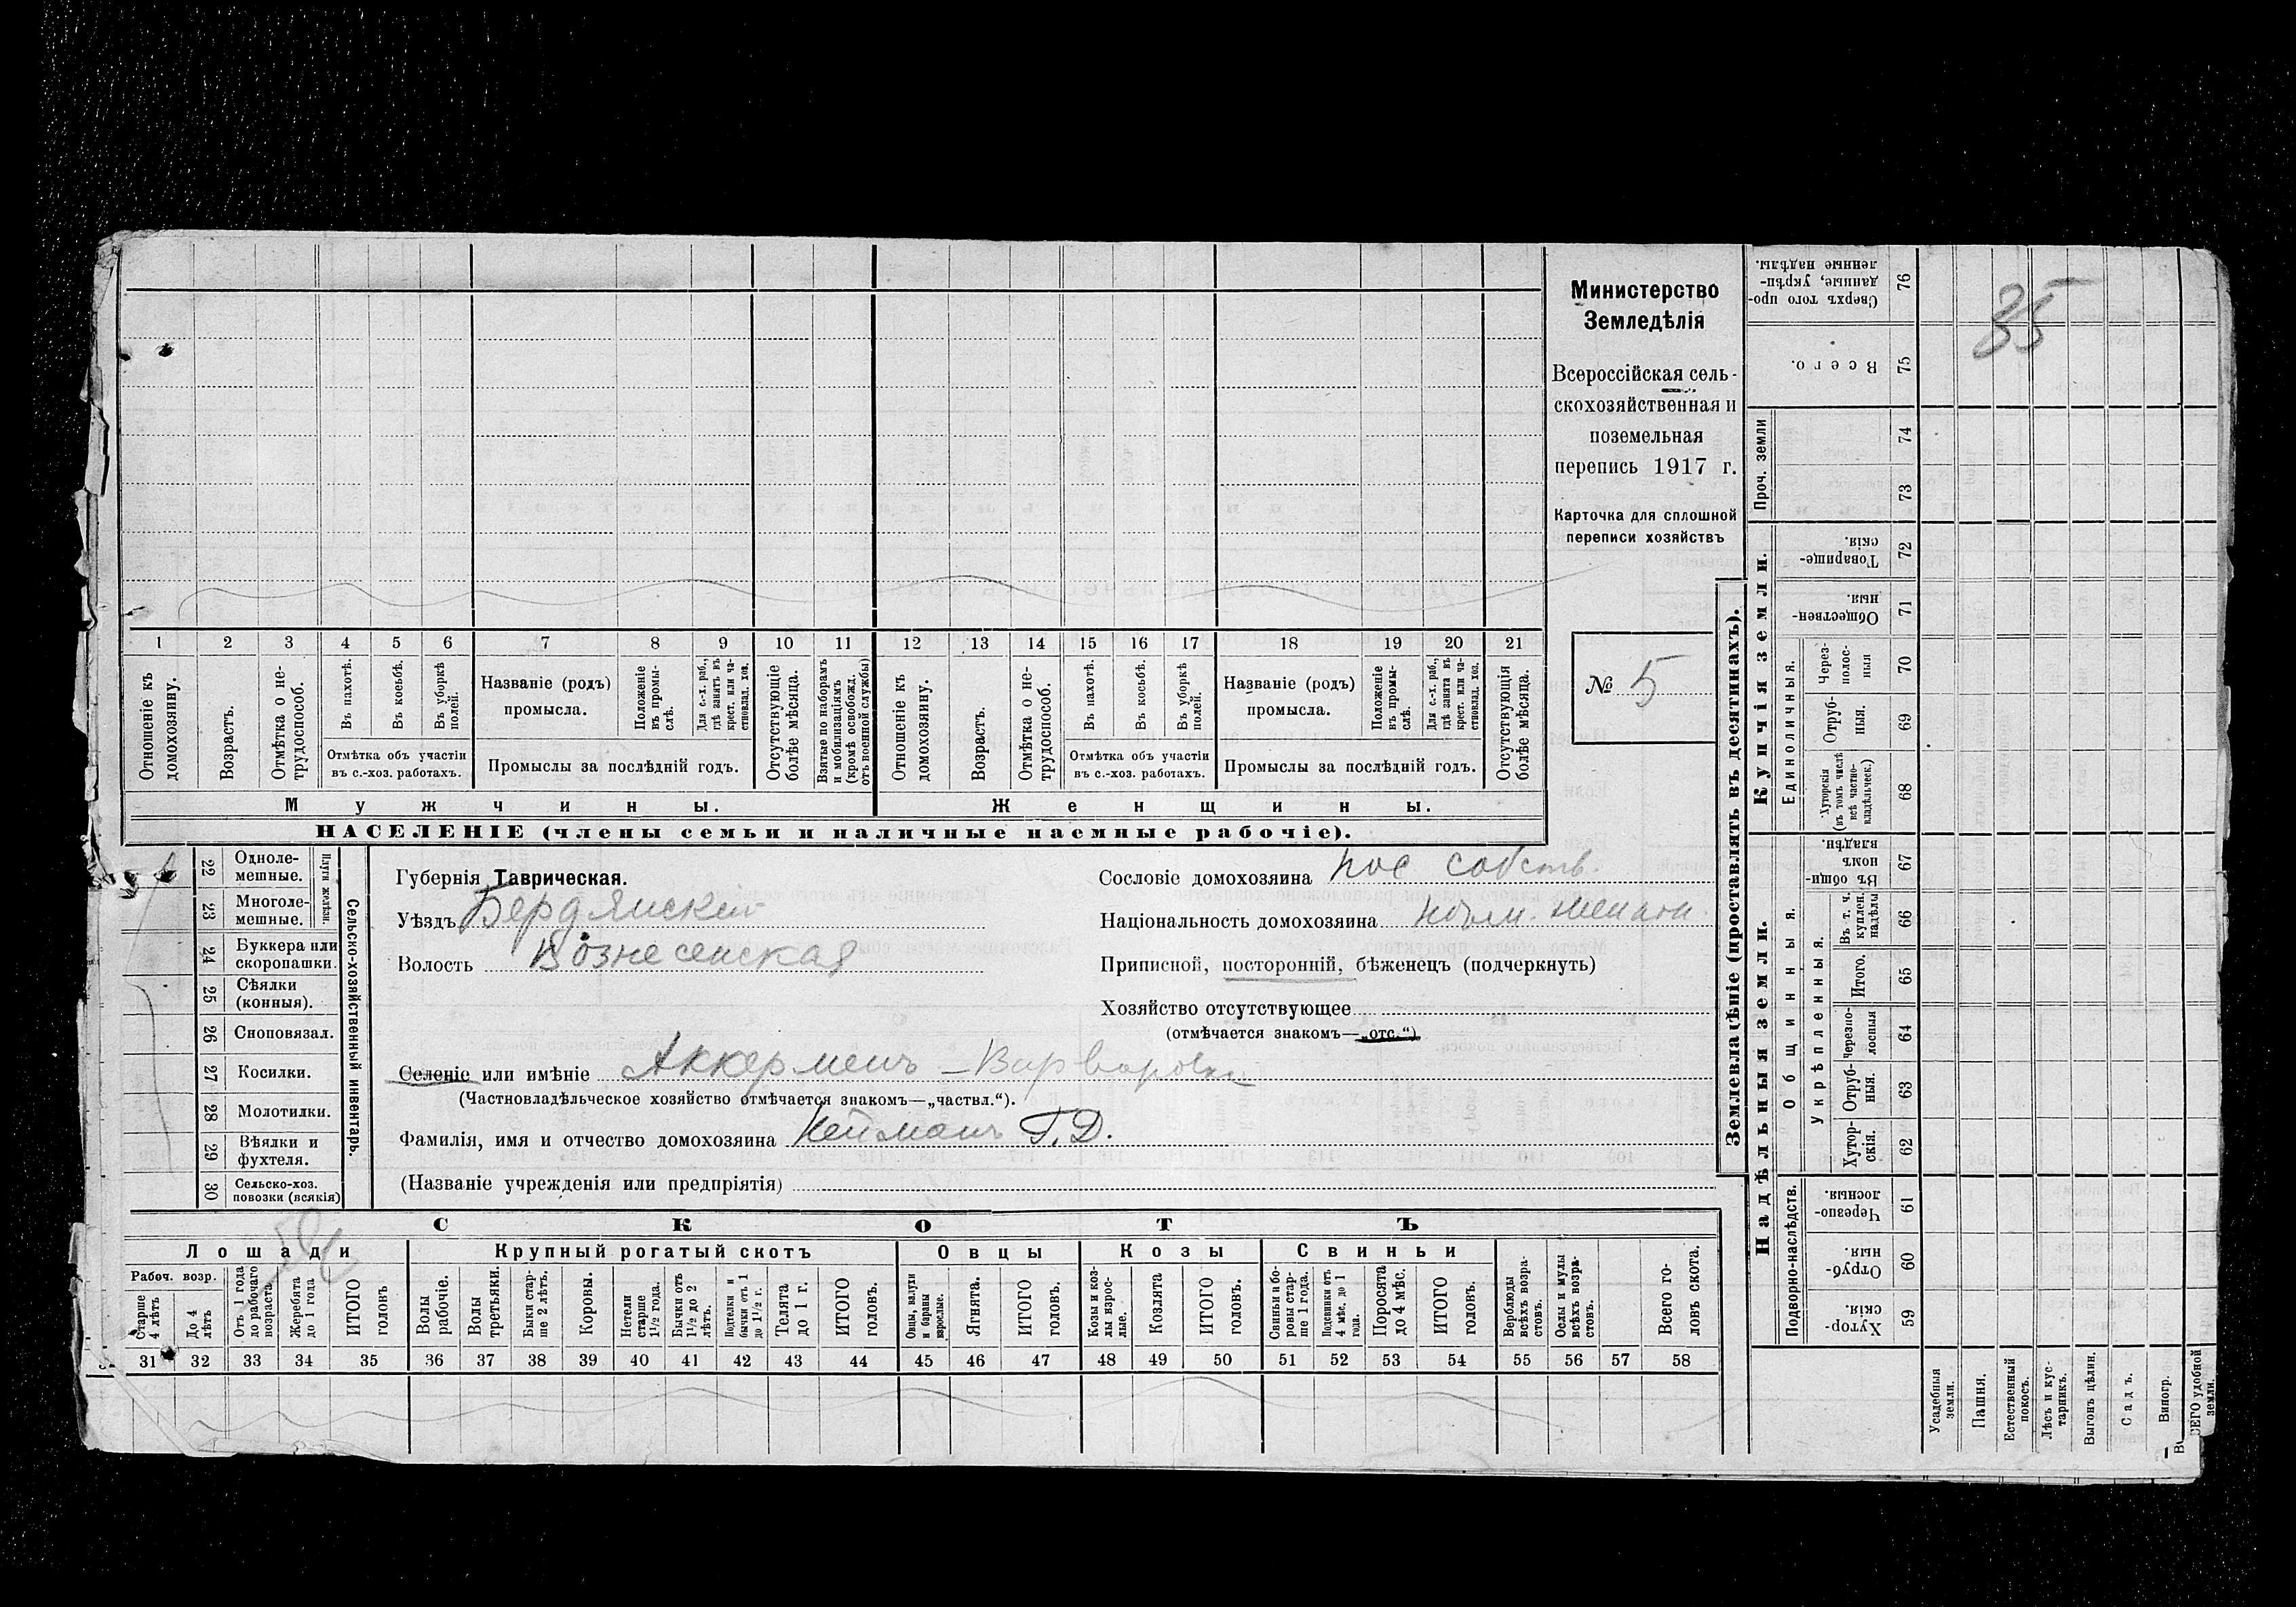 Министерство
Земледѣлія
Всероссійская сель-
скохозяйственная и
поземельная
перепись 1917 г.
Карточка для сплошной
переписи хозяйствъ
№ 5
1 2 3 4 5 6 7 8 9 10 11 12 13 14 15 16 17 18 19 20 21
Отношеніе къ домохозяину.
Возрастъ.
Отмѣтка о не-трудоспособ.
Въ пахотѣ.
Въ косьбѣ.
Въ уборкѣ полей.
Отмѣтка объ участіи
въ с.-хоз. работахъ.
Названіе (родъ)
промысла.
Положеніе въ промы-слѣ.
Для с.-х. раб., гдѣ занятъ въ крест. или ча-стновлад. хоз.
Промыслы за послѣдній годъ.
Отсутствующіе болѣе мѣсяца.
Взятые по наборамъ и мобилизаціямъ (кромѣ освобожд. отъ военной службы)
Отношеніе къ домохозяину.
Возрастъ.
Отмѣтка о не-трудоспособ.
Въ пахотѣ.
Въ косьбѣ.
Въ уборкѣ полей.
Отмѣтка объ участіи
въ с.-хоз. работахъ.
Названіе (родъ)
промысла.
Положеніе въ промы-слѣ.
Для с.-х. раб., гдѣ занята въ крест. или ча-стновлад. хоз.
Промыслы за послѣдній годъ.
Отсутствующія болѣе мѣсяца.
Мужчины.
Женщины.
НАСЕЛЕНІЕ (члены семьи и наличные наемные рабочіе).
22 Одноле-мешные.
23 Многоле-мешные.
24 Буккера или скоропашки.
25 Сѣялки (конныя).
26 Сноповязал.
27 Косилки.
28 Молотилки.
29 Вѣялки и фухтеля.
30 Сельско-хоз. повозки (всякія)
Плуги желѣзн.
Сельско-хозяйственный инвентарь.
Губернія Таврическая.
Уѣздъ Бердянский
Волость Вознесенская
Сословіе домохозяина пос собств.
Національность домохозяина
Приписной, посторонній, бѣженецъ (подчеркнуть)
Хозяйство отсутствующее
(отмѣчается знакомъ—„отс.“)
Селеніе или имѣніе Аккерменъ – Варваровка
(Частновладѣльческое хозяйство отмѣчается знакомъ—„частвл.“).
Фамилія, имя и отчество домохозяина Нейманъ Г. Д.
(Названіе учрежденія или предпріятія)
СКОТЪ
Лошади
Крупный рогатый скотъ
Овцы
Козы
Свиньи
Рабоч. возр.
Старше 4 лѣтъ
До 4 лѣтъ
Отъ 1 года до рабочаго возраста
Жеребята до 1 года
ИТОГО головъ
Волы рабочіе.
Волы третьяки.
Быки стар-ше 2 лѣтъ.
Коровы.
Нетели старше 1½ года.
Бычки отъ 1½ до 2 лѣтъ.
Подтелки и бычки отъ 1 до 1½ г.
Телята до 1 г.
ИТОГО головъ.
Овцы, валухи и бараны взрослые.
Ягнята.
ИТОГО головъ.
Козы и коз-лы взрос-лые.
Козлята
ИТОГО головъ.
Свиньи и бо-ровы стар-ше 1 года.
Подсвинки отъ 4 мѣс. до 1 года.
Поросята до 4 мѣс.
ИТОГО головъ.
Верблюды всѣхъ возра-стовъ.
Ослы и мулы всѣхъ возра-стовъ.
Всего го-ловъ скота.
31 32 33 34 35 36 37 38 39 40 41 42 43 44 45 46 47 48 49 50 51 52 53 54 55 56 57 58
Землевладѣніе (проставлять въ десятинахъ).
Надѣльныя земли.
Купчія земли.
Проч. земли
Сверхъ того про-данные, укрѣп-ленные надѣлы. 76
Всего. 75
74
73
Товарище-скія. 72
Обществен-ныя. 71
Единоличныя.
Через-полос-ныя 70
Отруб-ныя. 69
Хуторскія (въ томъ числѣ всѣ частно-владѣльческ.) 68
Общинныя.
Въ общи-номъ владѣн. 67
Укрѣпленныя.
Въ т. ч. куплен. надѣлы 66
Итого. 65
Черезпо-лосныя 64
Отруб-ныя. 63
Хутор-скія. 62
Подворно-наслѣдств.
Черезпо-лосныя. 61
Отруб-ныя. 60
Хутор-скія. 59
Усадебныя земли.
Пашня.
Естественный покосъ.
Лѣсъ и кус-тарникъ.
Выгонъ цѣлин.
Садъ.
Виногр.
ВСЕГО удобной земли.
35